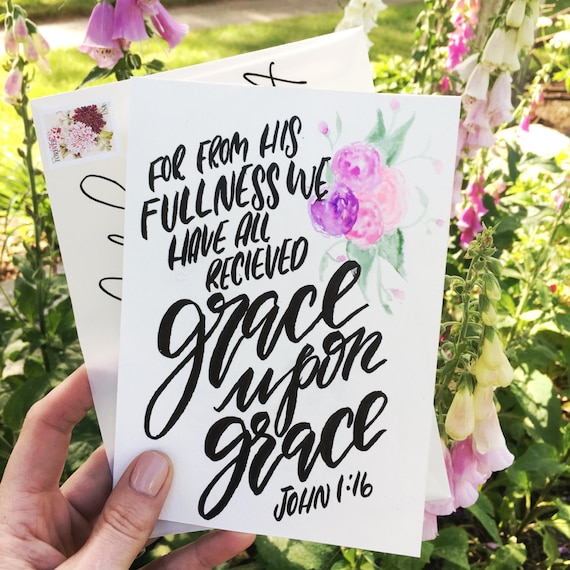 FOR FROM HIS
FULLNESS WE
HAVE ALL
RECIEVED
grace
upon
grace
JOHN 1:16